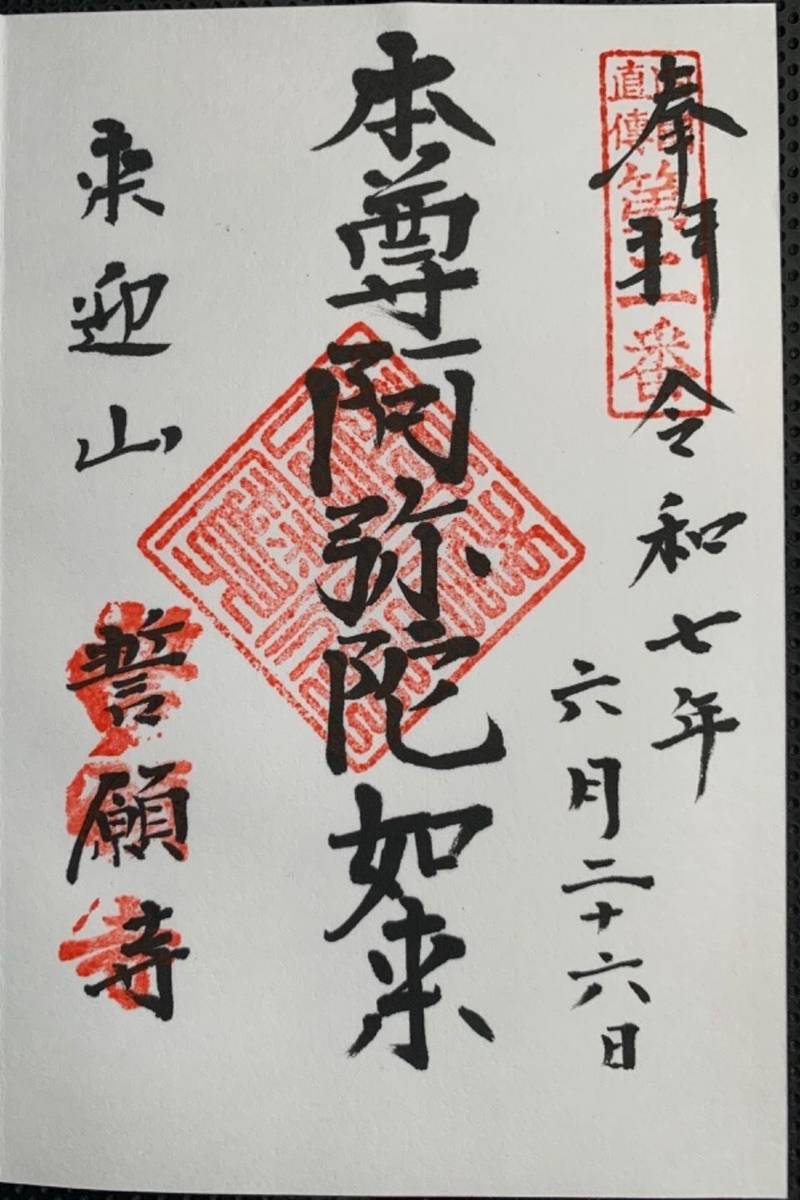 奉拝 令和七年
六月二十六日
本尊阿弥陀如来
来迎山 誓願寺
直傳
番